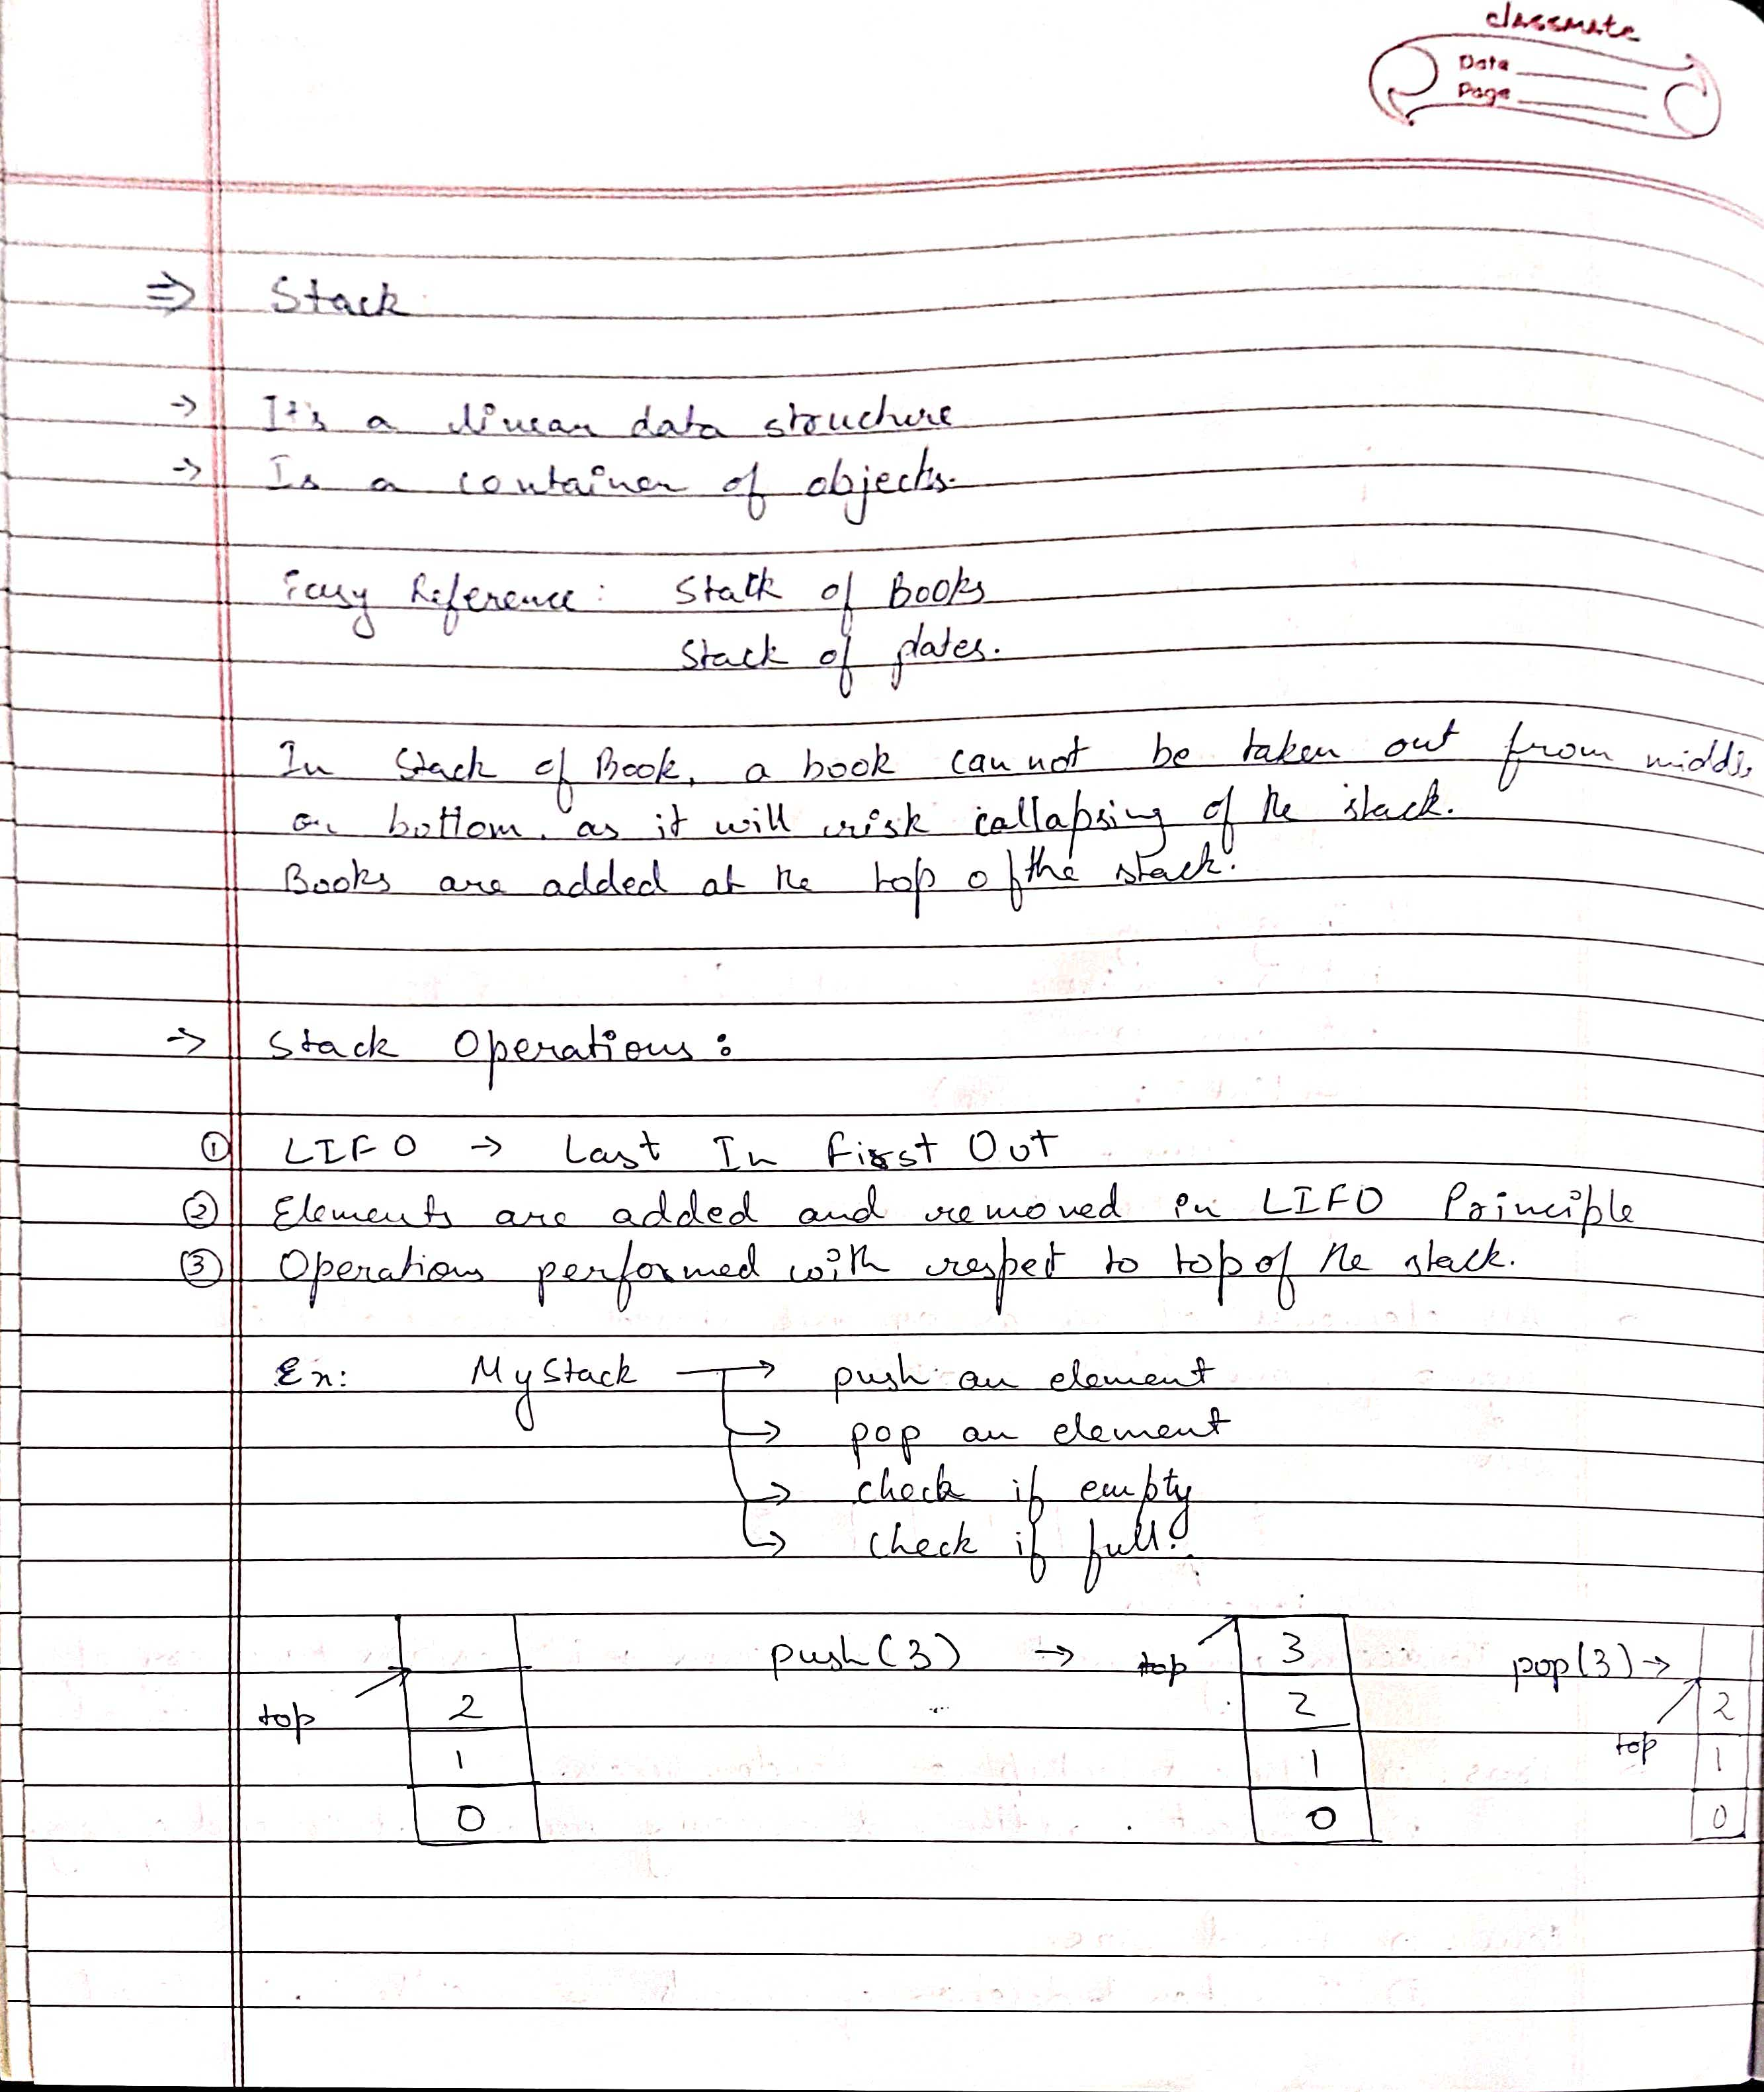 classmate
Date
Page
⇒ Stack
→ It's a linear data structure
→ Is a container of objects.
Easy Reference: Stack of Books
Stack of plates.
In Stack of Book, a book cannot be taken out from middle
or bottom. as it will risk callapsing of the stack.
Books are added at the top of the stack.
→ Stack Operations:
① LIFO → Last In First Out
② Elements are added and removed in LIFO Principle
③ Operations performed with respet to top of the stack.
Ex: MyStack → push an element
→ pop an element
→ check if empty
→ check if full.
push(3) → top 3 pop(3) →
top 2 2 top 2
1 1 1
0 0 0